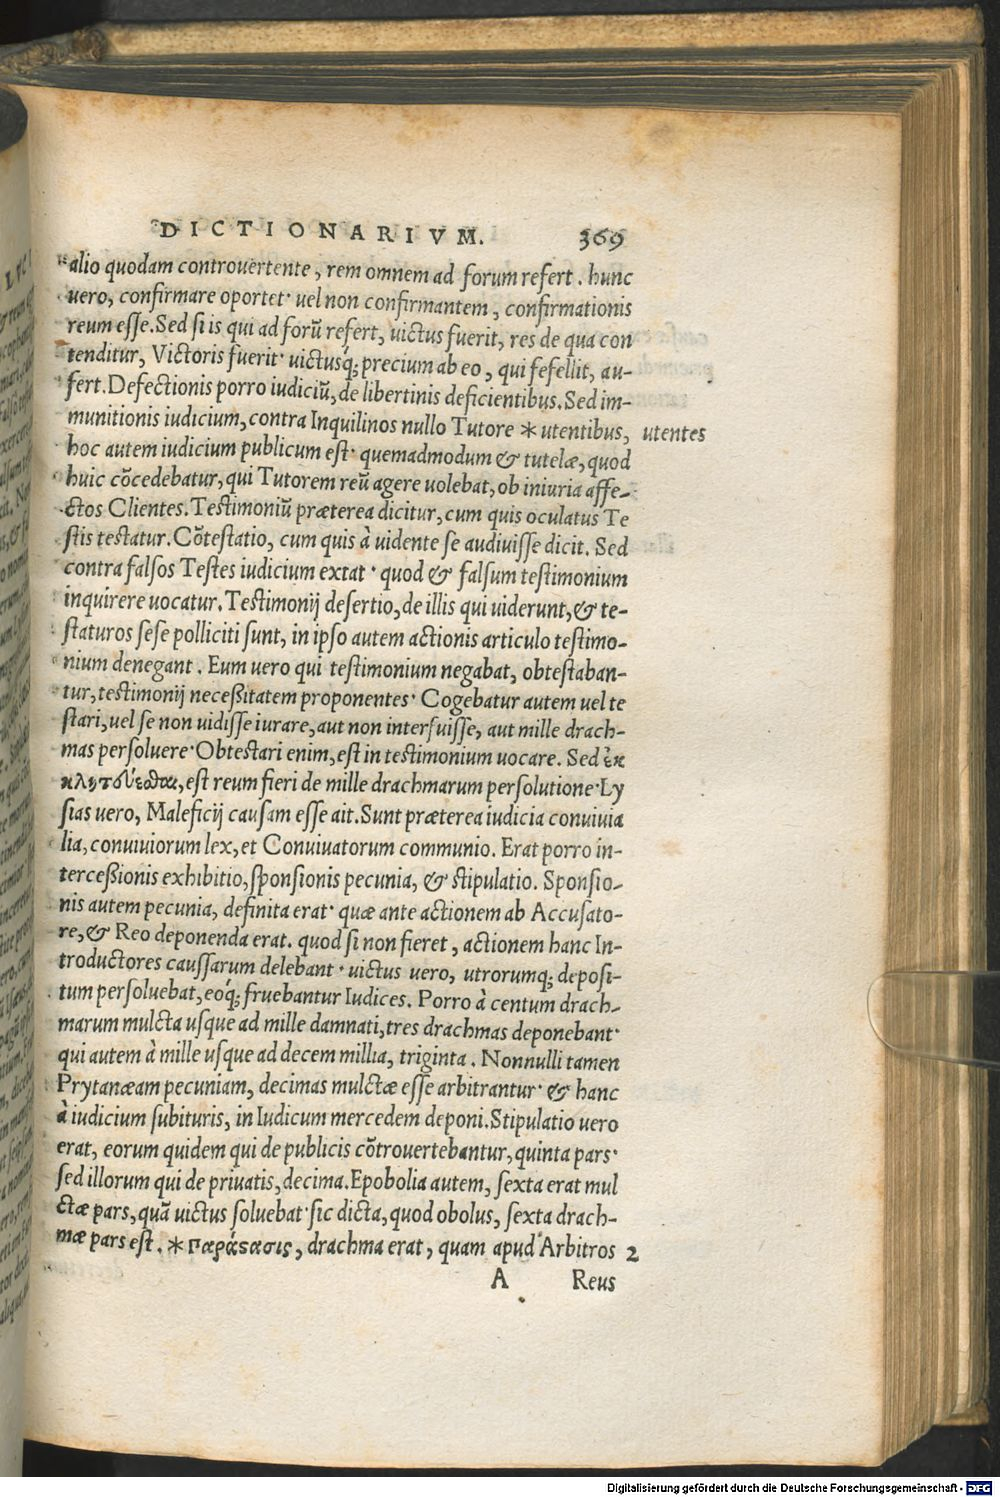 DICTIONARIVM. 369
alio quodam controuertente, rem omnem ad forum refert. hunc
uero, confirmare oportet· uel non confirmantem, confirmationis
reum esse. Sed si is qui ad forũ refert, uictus fuerit, res de qua con
tenditur, Victoris fuerit· uictusq́; precium ab eo, qui fefellit, au-
fert. Defectionis porro iudiciũ, de libertinis deficientibus. Sed im-
munitionis iudicium, contra Inquilinos nullo Tutore * utentibus, utentes
hoc autem iudicium publicum est· quemadmodum & tutelæ, quod
huic cõcedebatur, qui Tutorem reũ agere uolebat, ob iniuria affe-
ctos Clientes. Testimoniũ præterea dicitur, cum quis oculatus Te
stis testatur. Cõtestatio, cum quis à uidente se audiuisse dicit. Sed
contra falsos Testes iudicium extat· quod & falsum testimonium
inquirere uocatur. Testimonij desertio, de illis qui uiderunt, & te-
staturos sese polliciti sunt, in ipso autem actionis articulo testimo-
nium denegant. Eum uero qui testimonium negabat, obtestaban-
tur, testimonij necessitatem proponentes· Cogebatur autem uel te
stari, uel se non uidisse iurare, aut non interfuisse, aut mille drach-
mas persoluere· Obtestari enim, est in testimonium uocare. Sed ἐκ
κλητεύεσθαι, est reum fieri de mille drachmarum persolutione· Ly
sias uero, Maleficij causam esse ait. Sunt præterea iudicia conuiuia
lia, conuiuiorum lex, et Conuiuatorum communio. Erat porro in-
tercessionis exhibitio, sponsionis pecunia, & stipulatio. Sponsio-
nis autem pecunia, definita erat· quæ ante actionem ab Accusato-
re, & Reo deponenda erat. quod si non fieret, actionem hanc In-
troductores caussarum delebant· uictus uero, utrorumq; deposi-
tum persoluebat, eoq́; fruebantur Iudices. Porro à centum drach-
marum mulcta usque ad mille damnati, tres drachmas deponebant·
qui autem à mille usque ad decem millia, triginta. Nonnulli tamen
Prytanæam pecuniam, decimas mulctæ esse arbitrantur· & hanc
à iudicium subituris, in Iudicum mercedem deponi. Stipulatio uero
erat, eorum quidem qui de publicis cõtrouertebantur, quinta pars·
sed illorum qui de priuatis, decima. Epobolia autem, sexta erat mul
ctæ pars, quã uictus soluebat· sic dicta, quod obolus, sexta drach-
mæ pars est. * παράστασις, drachma erat, quam apud Arbitros 2
A Reus
Digitalisierung gefördert durch die Deutsche Forschungsgemeinschaft - DFG